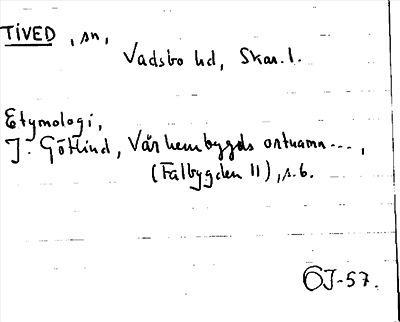 TIVED, sn,
Vadsbo hd, Skar. l.
Etymologi,
J. Götlind, Vår hembygds ortnamn...,
(Falbygden II), s. 6.
OJ-57.